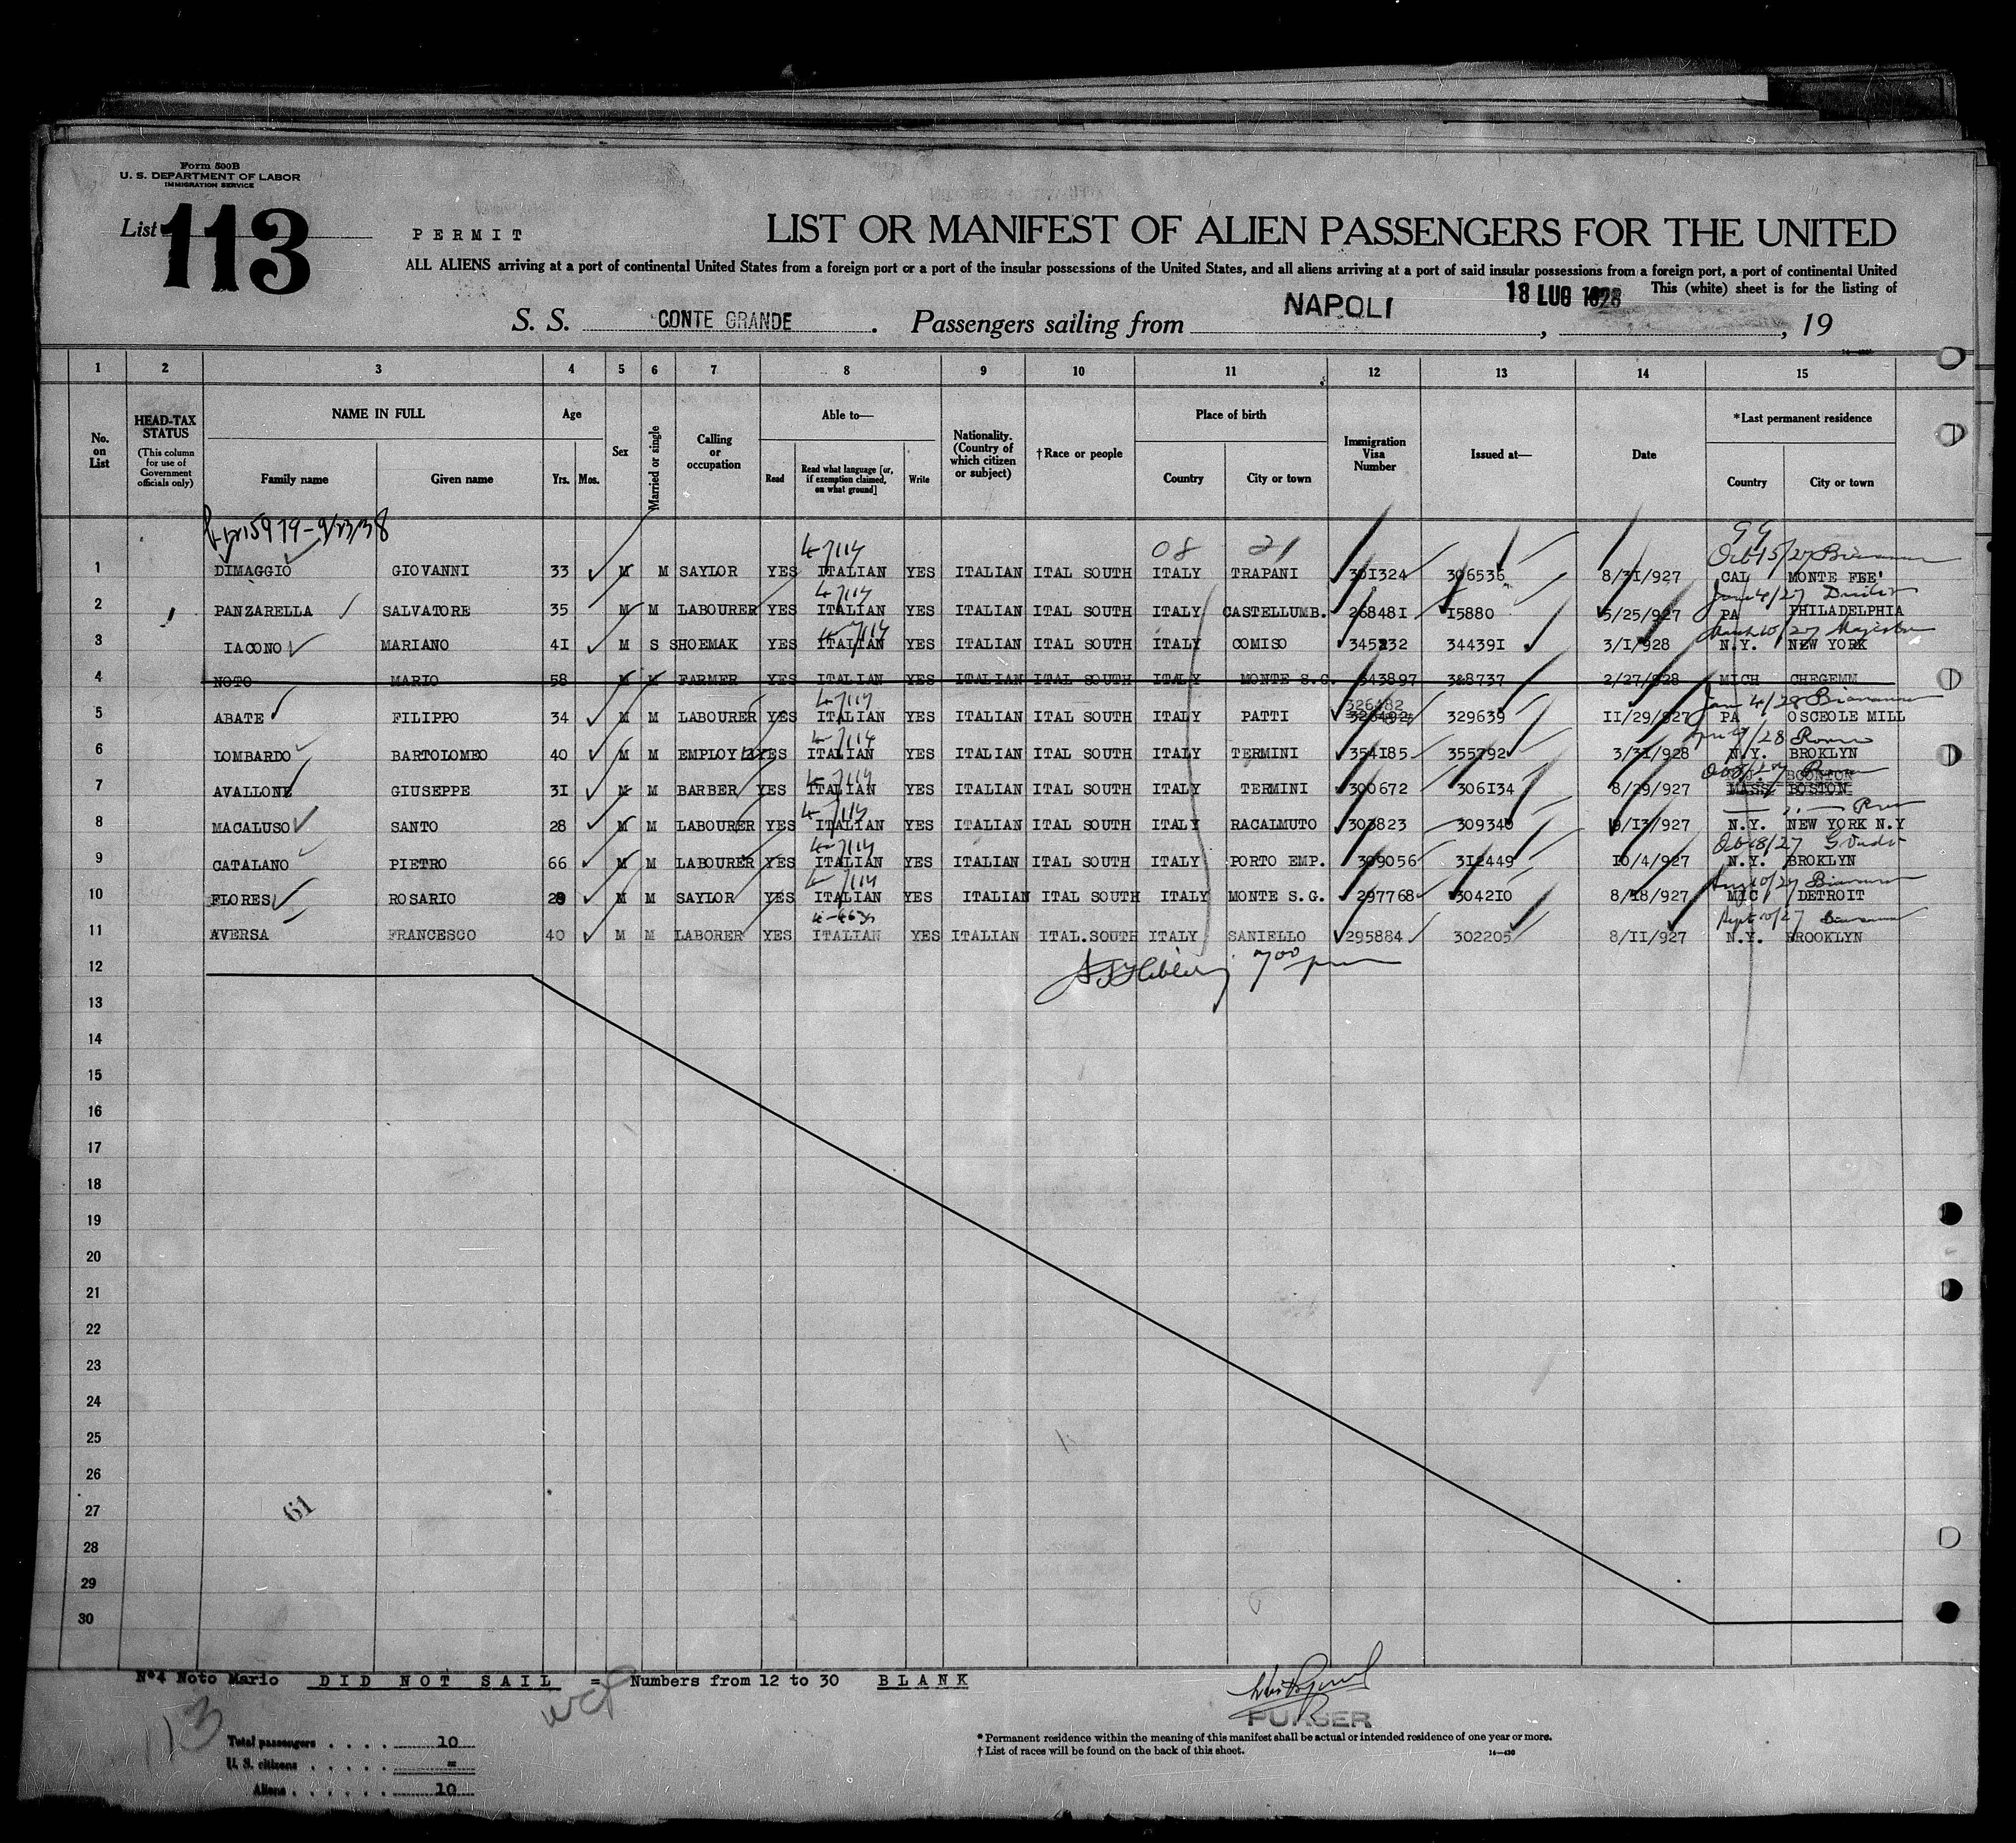 Form 500B
U. S. DEPARTMENT OF LABOR
IMMIGRATION SERVICE
List 113
PERMIT
LIST OR MANIFEST OF ALIEN PASSENGERS FOR THE UNITED
ALL ALIENS arriving at a port of continental United States from a foreign port or a port of the insular possessions of the United States, and all aliens arriving at a port of said insular possessions from a foreign port, a port of continental United
This (white) sheet is for the listing of
S. S. CONTE GRANDE. Passengers sailing from NAPOLI, 18 LUG 1928, 19
1 2 3 4 5 6 7 8 9 10 11 12 13 14 15
No. on List
HEAD-TAX STATUS
(This column for use of Government officials only)
NAME IN FULL
Family name Given name
Age
Yrs. Mos.
Sex
Married or single
Calling or occupation
Able to—
Read
Read what language [or, if exemption claimed, on what ground]
Write
Nationality. (Country of which citizen or subject)
†Race or people
Place of birth
Country City or town
Immigration Visa Number
Issued at—
Date
*Last permanent residence
Country City or town
08 21 99
1 DIMAGGIO GIOVANNI 33 M M SAYLOR YES ITALIAN YES ITALIAN ITAL SOUTH ITALY TRAPANI 301324 306536 8/31/927 CAL MONTE FEE'
2 PANZARELLA SALVATORE 35 M M LABOURER YES ITALIAN YES ITALIAN ITAL SOUTH ITALY CASTELLUMB. 268481 15880 5/25/927 PA PHILADELPHIA
3 IACONO MARIANO 41 M S SHOEMAK YES ITALIAN YES ITALIAN ITAL SOUTH ITALY COMISO 345232 344391 3/1/928 N.Y. NEW YORK
4 NOTO MARIO 58 M M FARMER YES ITALIAN YES ITALIAN ITAL SOUTH ITALY MONTE S.G. 343897 3&8737 2/27/928 MICH CHEGEMM
5 ABATE FILIPPO 34 M M LABOURER YES ITALIAN YES ITALIAN ITAL SOUTH ITALY PATTI 326482 329639 11/29/927 PA OSCEOLE MILL
6 LOMBARDO BARTOLOMEO 40 M M EMPLOY YES ITALIAN YES ITALIAN ITAL SOUTH ITALY TERMINI 354185 355792 3/31/928 N.Y. BROKLYN
7 AVALLONE GIUSEPPE 31 M M BARBER YES ITALIAN YES ITALIAN ITAL SOUTH ITALY TERMINI 300672 306134 8/29/927 MASS BOSTON
8 MACALUSO SANTO 28 M M LABOURER YES ITALIAN YES ITALIAN ITAL SOUTH ITALY RACALMUTO 303823 309340 9/13/927 N.Y. NEW YORK N.Y
9 CATALANO PIETRO 66 M M LABOURER YES ITALIAN YES ITALIAN ITAL SOUTH ITALY PORTO EMP. 309056 312449 10/4/927 N.Y. BROKLYN
10 FLORES ROSARIO 29 M M SAYLOR YES ITALIAN YES ITALIAN ITAL SOUTH ITALY MONTE S.G. 297768 304210 8/18/927 MIC DETROIT
11 AVERSA FRANCESCO 40 M M LABORER YES ITALIAN YES ITALIAN ITAL.SOUTH ITALY SANIELLO 295884 302205 8/11/927 N.Y. BROOKLYN
12
13
14
15
16
17
18
19
20
21
22
23
24
25
26
27
28
29
30
61
Nº4 Noto Mario DID NOT SAIL = Numbers from 12 to 30 BLANK
PURSER
113
Total passengers . . . . 10
U. S. citizens . . . . . =
Aliens . . . . . . 10
* Permanent residence within the meaning of this manifest shall be actual or intended residence of one year or more.
† List of races will be found on the back of this sheet.
14—430